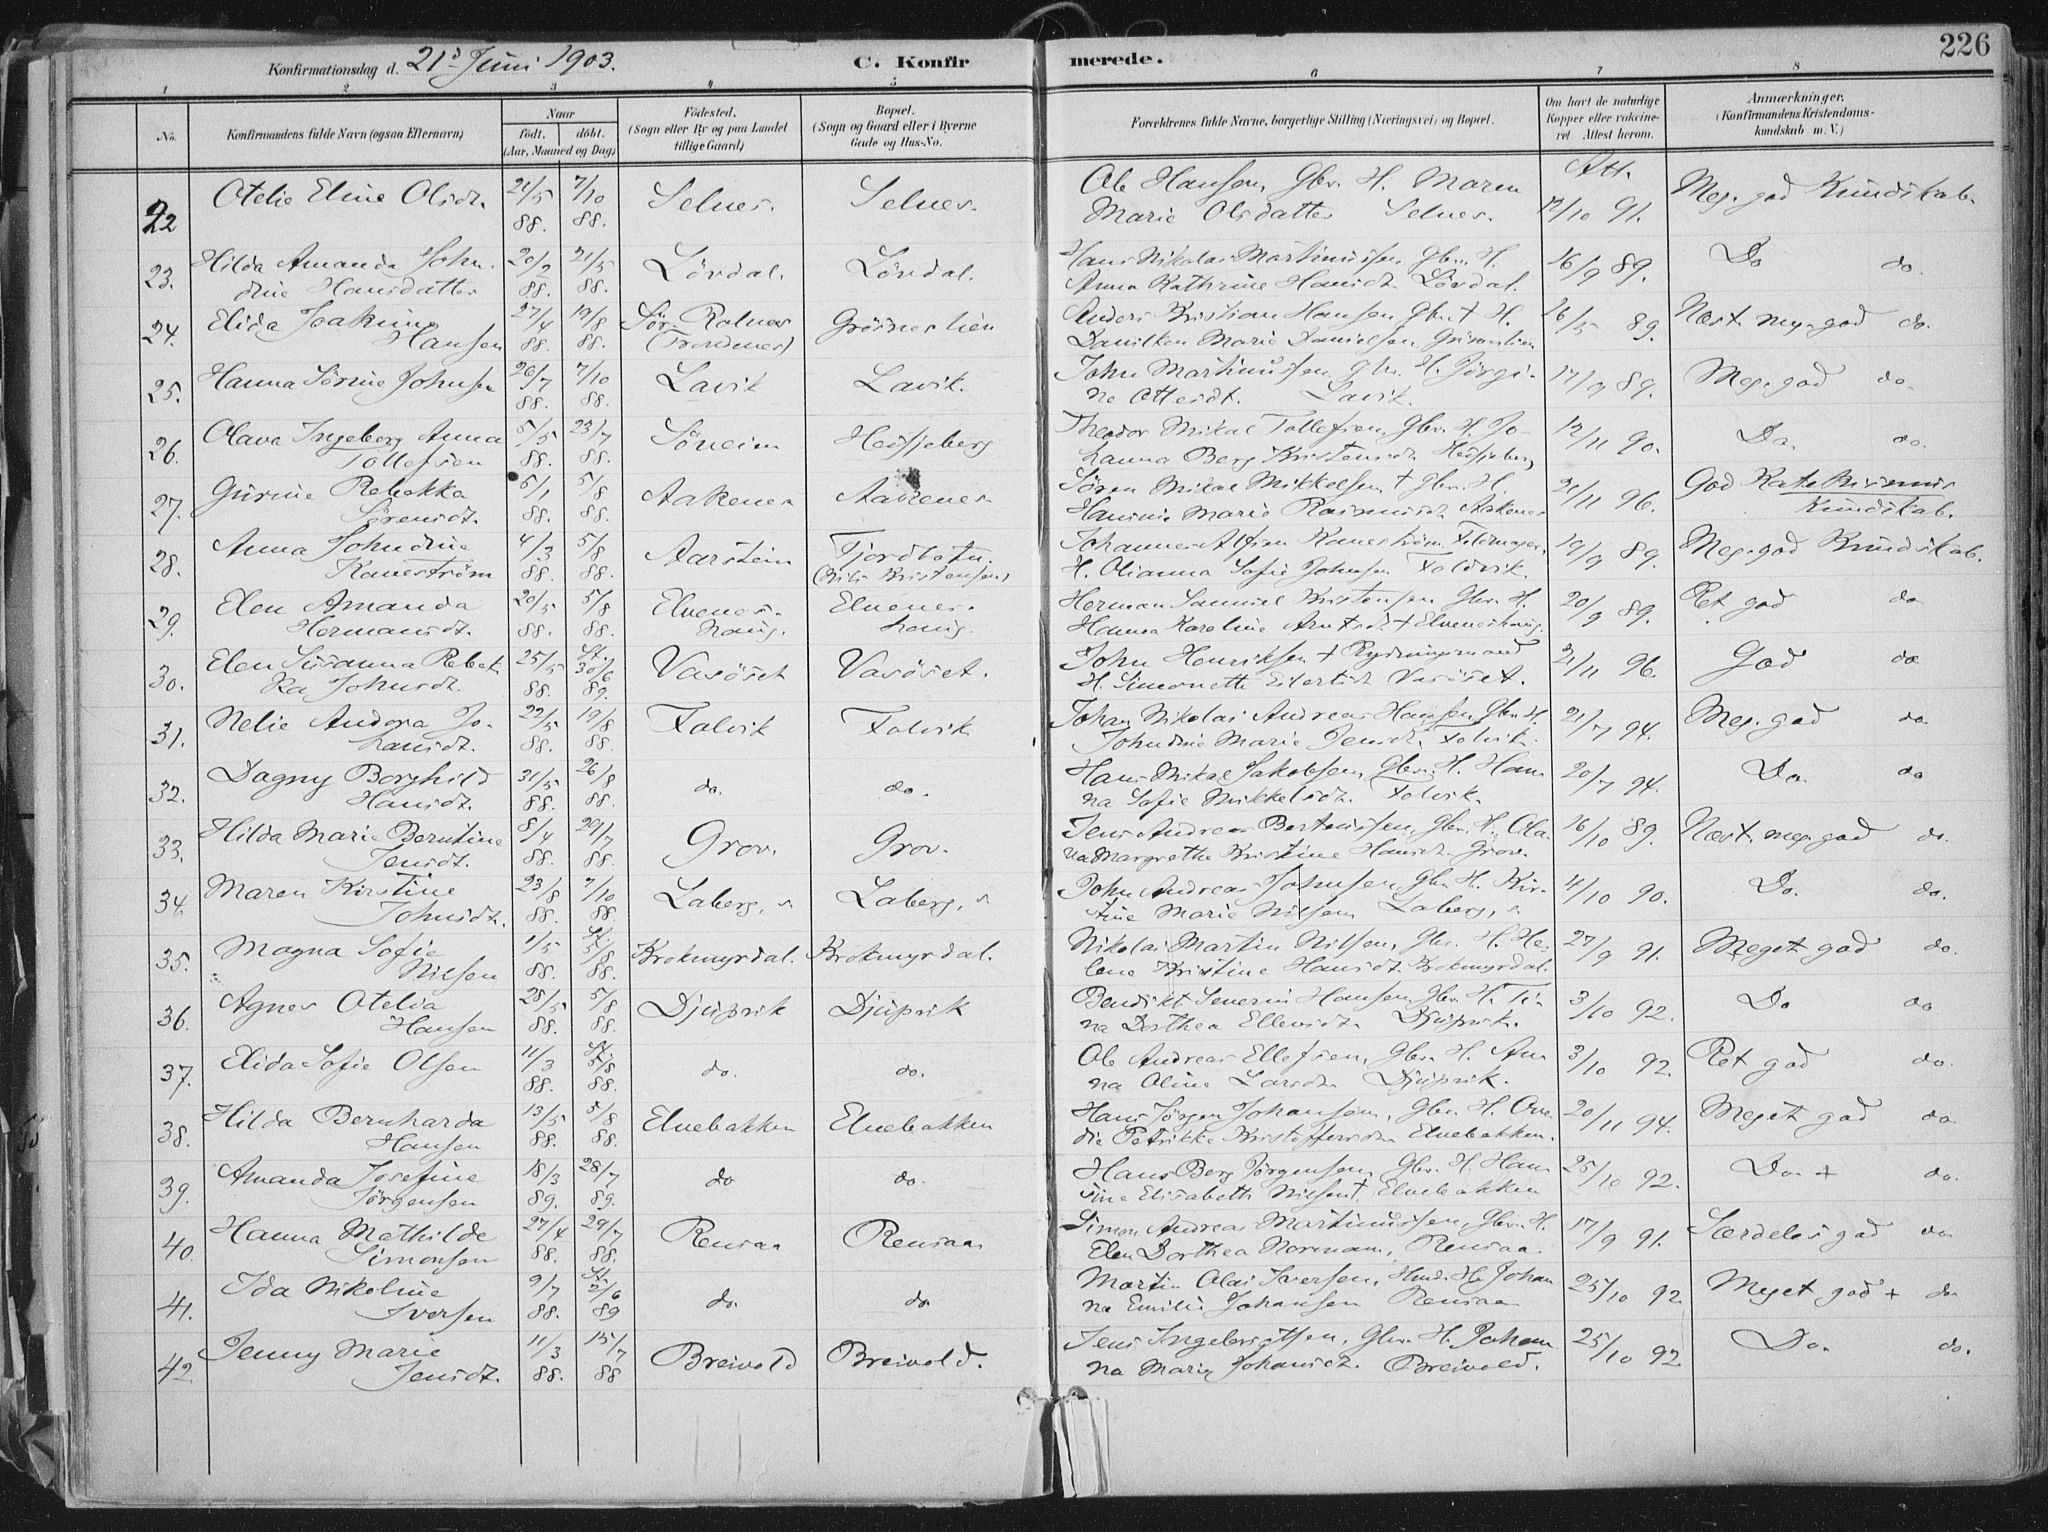 Konfirmationsdag d. 21de Juni 1903. C. Konfirmerede. 226
1 2 3 4 5 6 7 8
No. Konfirmandens fulde Navn (ogsaa Efternavn) Naar født. døbt. (Aar, Maaned og Dag) Födested. (Sogn eller By og paa Landet tillige Gaard) Bopæl. (Sogn og Gaard eller i Byerne Gade og Hus-No. Forældrenes fulde Navne, borgerlige Stilling (Næringsvei) og Bopæl. Om havt de naturlige Kopper eller vaccineret Attest herom. Anmærkninger. (Konfirmandens Kristendomskundskab m. V.)
22 Otelie Eline Olsdt. 21/5 88. 7/10 88. Selnes. Selnes. Ole Hansen, Gbr. H. Maren
Marie Olsdatter Selnes. Att. 12/10 91. Meg. god Kundskab.
23. Hilda Amanda John-
dine Hansdatter 20/2 88. 21/5 88. Lövdal. Lövdal. Hans Nikolai Martinussen, Gbr. H.
Anna Kathrine Hansdt. Lövdal. 16/9 89. Do do.
24. Elida Joakime
Hansen 27/4 88. 19/8 88. Sör Rolnes
(Trondenes) Grösneslien Anders Kristian Hansen Gbr. † H.
Marie Danielsen 26/5 89. Næst. meg. god do.
25. Hanna Sörine Johnsen 26/7 88. 7/10 88. Lavik Lavik. John Martinussen, Gbr. H. Jörgi-
ne Ottesdt. Lavik. 17/9 89. Meg. god do.
26. Olava Ingeberg Anna
Tollefsen 5/5 88. 23/7 88. Söreim Hessjeberg Theodor Mikal Tollefsen, Gbr. H. Jo-
hanna Berg Kristensdt. Hessjeberg 12/11 90. Do. do.
27. Gurine Rebekka
Sörensdt. 5/1 88. 5/8 88. Aakenes Aakenes Sören Mikal Mikkelsen, † Gbr. H.
Hansine Marie Rasmusdt. Aakenes 21/11 96. God Katekismus
Kundskab.
28. Anna Johndine
Kaneström 4/3 88. 5/8 88. Aarstein Fjordbotn.
(Nils Kristensen) Johannes Kaneström,
H. Olianna Sofie Johnsen Foldvik. 19/9 89. Meg. god Kundskab.
29. Elen Amanda
Hermansdt. 20/5 88. 5/8 88. Elvenes-
haug. Elvenes-
haug. Herman Samuel Kristensen Gbr. H.
Hanna Karoline Arntsdt. † Elveneshaug. 20/9 89. Ret god do
30. Elen Susanna Rebek-
ka Johnsdt. 25/5 88. St. 30/6 89. Vasöset Vasöset. John Henriksen † Rydningsmand
H. Simonette Eilertsdt. Vasöset. 21/11 96. God do
31. Nelie Andora Jo-
hansdt. 22/5 88. 19/8 88. Folvik Folvik Johan Nikolai Andreas Hansen, Gbr. H.
Johndine Marie Jensdt. Folvik. 21/7 94. Meg. god do
32. Dagny Borghild
Hansdt. 31/5 88. 26/8 88. do. do. Hans Mikal Jakobsen, Gbr. H. Han-
na Sofie Mikkelsdt. Folvik. 20/7 94. Do. do
33. Hilda Marie Berntine
Jensdt. 8/4 88. 29/7 88. Grov. Grov. Jens Andreas Berteussen, Gbr. H. Ole-
na Margrethe Kristine Hansdt. Grov. 16/10 89. Næst. meg. god do.
34. Maren Kirstine
Johnsdt. 23/8 88. 7/10 88. Laberg, s. Laberg, s. John Andreas Johnsen, Gbr. H. Kir-
stine Marie Nilsen, Laberg, s. 4/10 90. Do. do.
35. Magna Sofie
Nilsen 1/5 88. St. 5/8 88. Krokmyrdal. Krokmyrdal. Nikolai Martin Nilsen, Gbr. H. He-
lene Kristine Hansdt. Krokmyrdal. 27/9 91. Meget god do.
36. Agnes Otelia
Hansen 28/5 88. 5/8 88. Djupvik Djupvik Bendikt Severin Hansen, Gbr. H. Ti-
na Dorthea Ellevsdt. Djupvik. 3/10 92. Do do
37. Elida Sofie Olsen 11/3 88. St. 5/8 88. do. do. Ole Andreas Ellefsen, Gbr. H. An-
na Oline Larsdt. Djupvik. 3/10 92. Ret god do.
38. Hilda Bernharda
Hansen 13/5 88. 5/8 88. Elvebakken Elvebakken Hans Jörgen Johansen, Gbr. H. Ove-
die Petrikke Kristoffersdt. Elvebakken. 20/11 94. Meget god do.
39. Amanda Josefine
Jörgensen 18/3 89. 28/7 89. do do. Hans Berg Jörgensen, Gbr. H. Han-
sine Elisabeth Nilsen † Elvebakken 25/10 92. Do. + do.
40. Hanna Mathilde
Simonsen 27/4 88. 29/7 88. Rensaa Rensaa Simon Andreas Martinussen, Gbr. H.
Elen Dorthea Normann, Rensaa. 17/9 91. Særdeles god do
41. Ida Nikoline
Iversen 9/7 88. St. 2/6 89 do. do. Martin Olai Iversen, Husm. H. Johan-
na Emilie Johansen Rensaa 25/10 92. Meget god + do
42. Jenny Marie
Jensdt. 11/3 88. 15/7 88 Breivold Breivold. Jens Ingebrigtsen, Gbr. H. Johan-
na Marie Johansdt. Breivold. 25/10 92. Do. do.